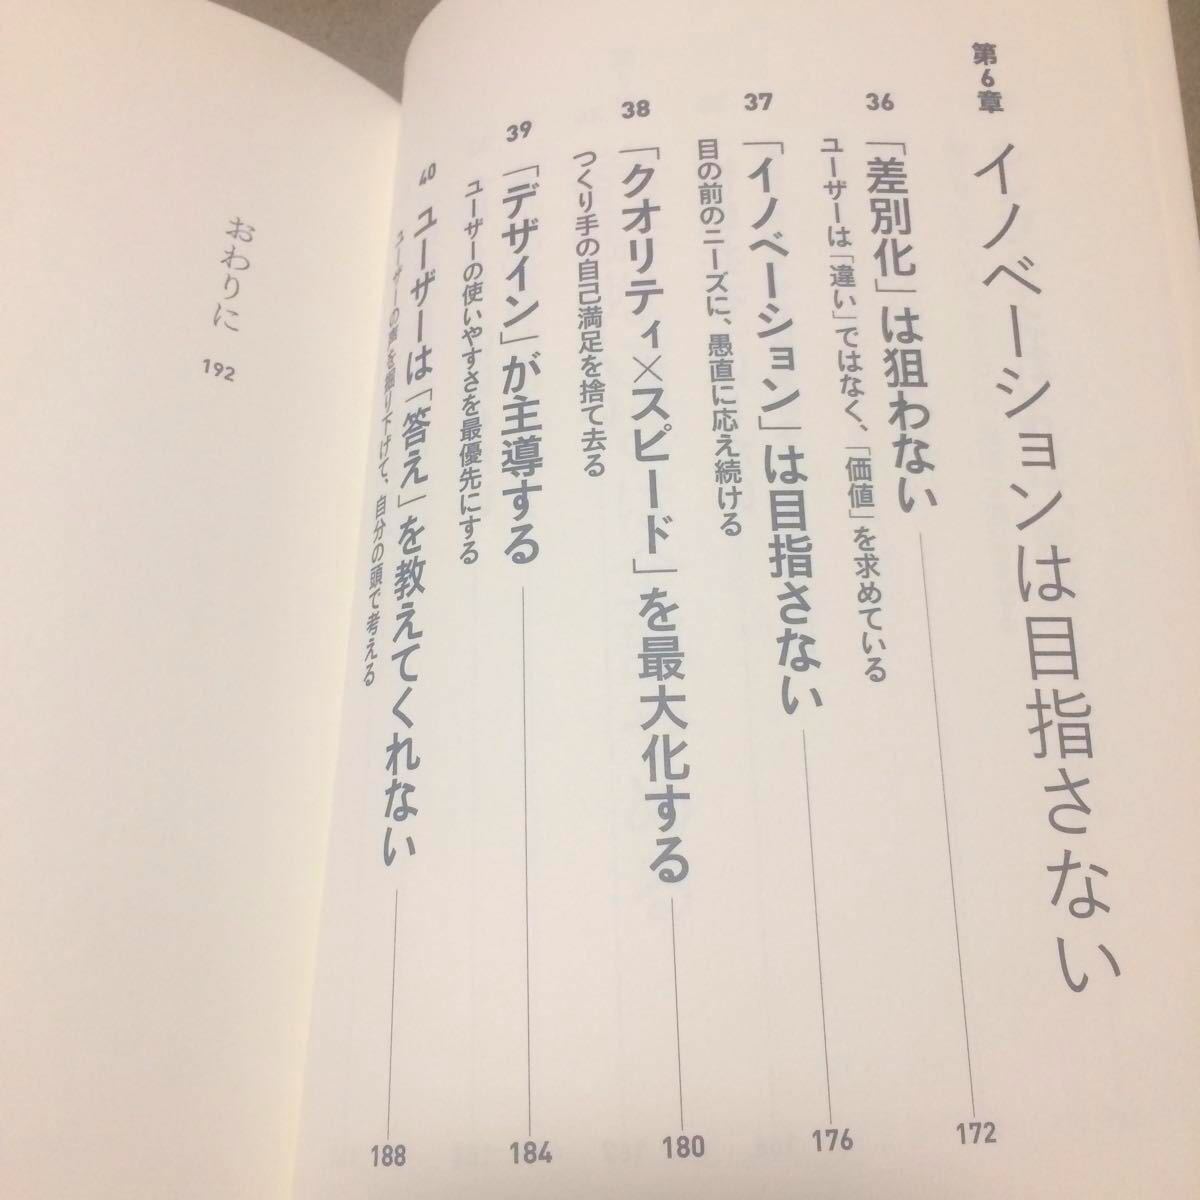 第6章
イノベーションは目指さない
36
「差別化」は狙わない
172
ユーザーは「違い」ではなく、「価値」を求めている
37
「イノベーション」は目指さない
176
目の前のニーズに、愚直に応え続ける
38
「クオリティ×スピード」を最大化する
180
つくり手の自己満足を捨て去る
39
「デザイン」が主導する
184
ユーザーの使いやすさを最優先にする
40
ユーザーは「答え」を教えてくれない
188
ユーザーの声を掘り下げて、自分の頭で考える
おわりに
192